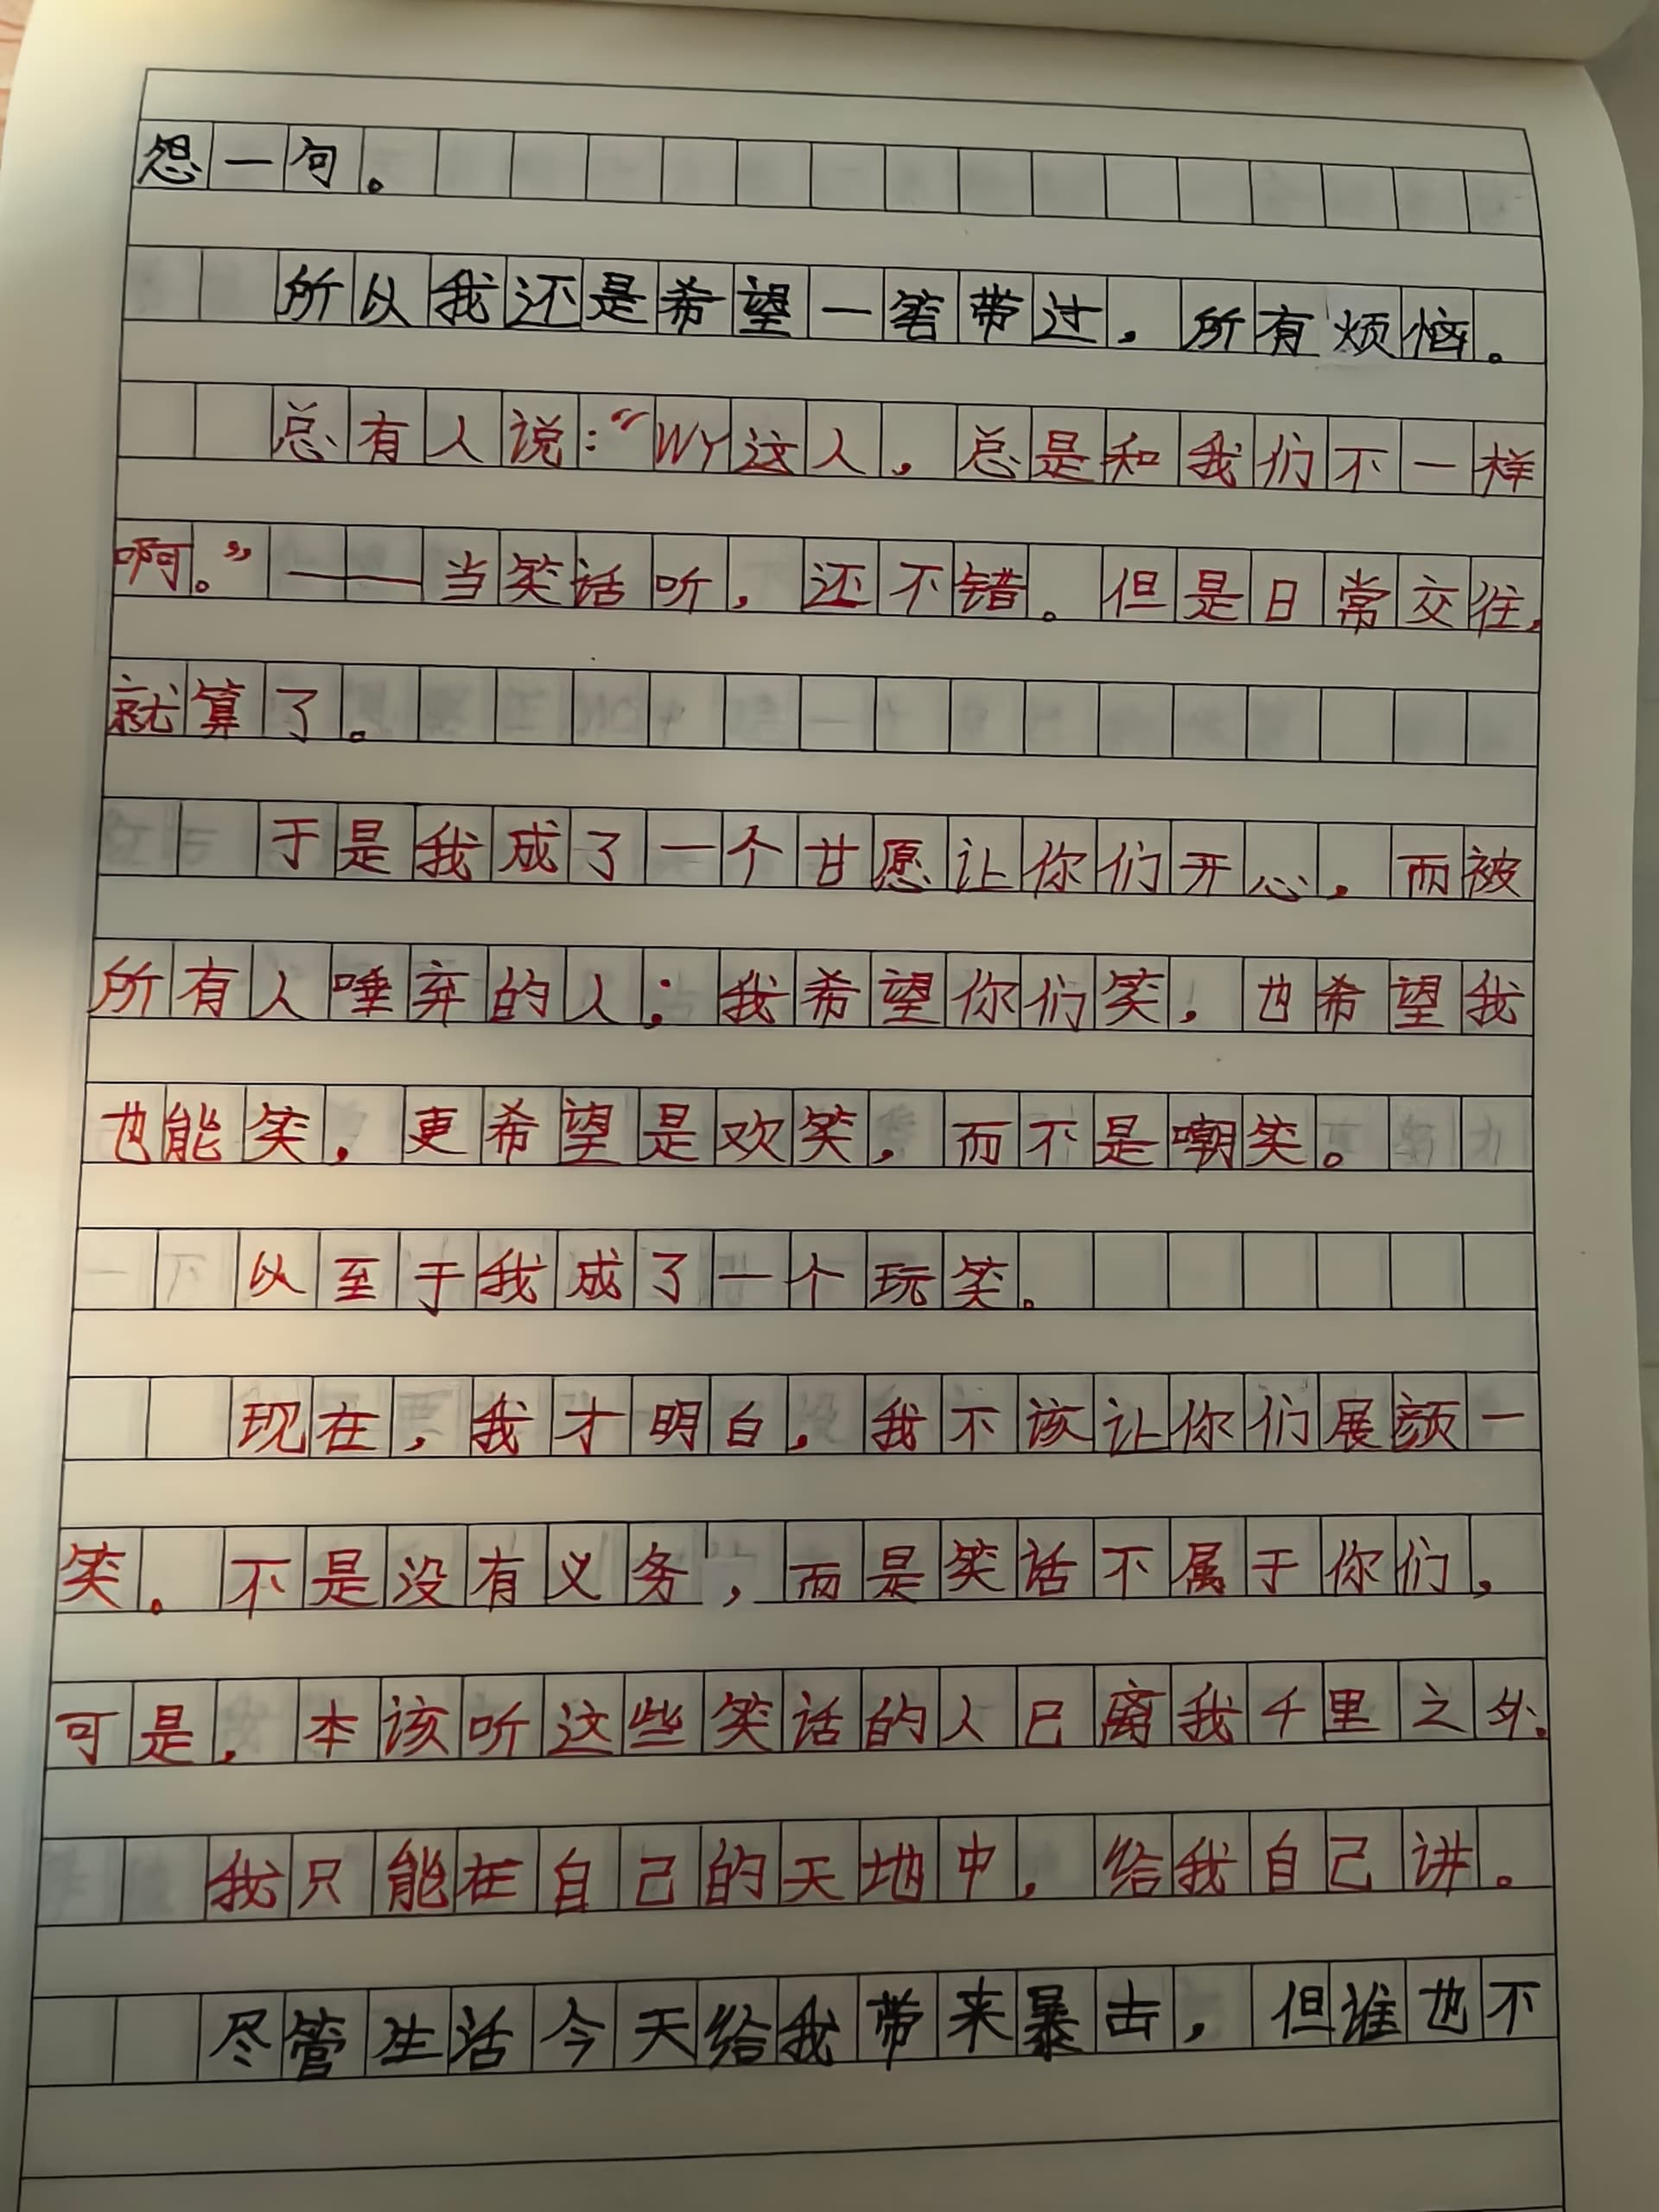 怨一句。
所以我还是希望一笔带过，所有烦恼。
总有人说：“WY这人，总是和我们不一样
啊。”——当笑话听，还不错。但是日常交往，
就算了。
于是我成了一个甘愿让你们开心，而被
所有人唾弃的人；我希望你们笑，也希望我
也能笑，更希望是欢笑，而不是嘲笑。
以至于我成了一个玩笑。
现在，我才明白，我不该让你们展颜一
笑。不是没有义务，而是笑话不属于你们，
可是，本该听这些笑话的人已离我千里之外。
我只能在自己的天地中，给我自己讲。
尽管生活今天给我带来暴击，但谁也不